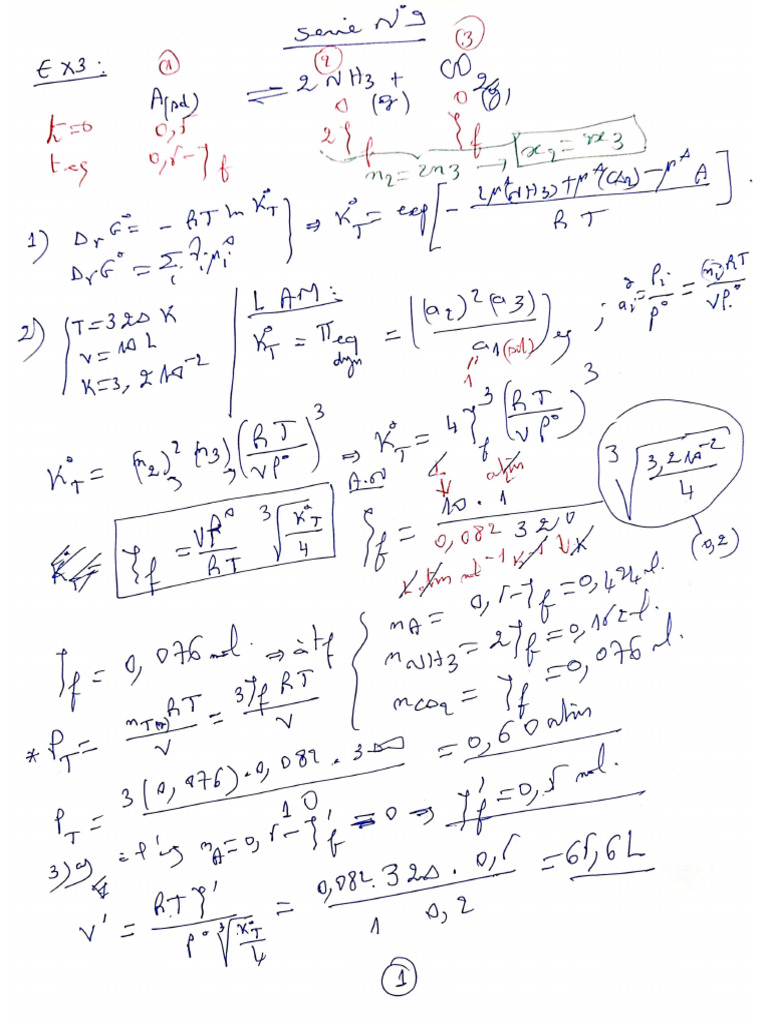 Serie N°9
Ex3: ① ② ③
A(sd) ⇌ 2 NH3 + CO2(g)
(g)
t=0 0,5 0 0
teq 0,5-ξf 2ξf ξf
n2=2n3 → x2=2x3
1) ΔrG°= - RT ln K°T
ΔrG°= Σi νi μi°
⇒ K°T = exp[- (2μ°(NH3)+μ°(CO2)-μ°A) / RT].
2) T=320 K
v=10 L
K=3,2 10⁻²
LAM:
K°T = Πeq = ((a2)²(a3) / a1(sd))eq ; ai = Pi/P° = (ni)RT/VP°
dyn
1
K°T = (n2)²(n3)(RT/VP°)³ ⇒ K°T = 4ξf³(RT/VP°)³
ξf = VP°/RT ³√(K°T/4)
A.N
L atm
ξf = 10 . 1 / 0,082 320 ³√(3,2 10⁻²/4)
L atm mol⁻¹ K⁻¹ K
(0,2)
ξf = 0,076 mol. ⇒ à tf
nA = 0,5-ξf = 0,424 l.
nNH3 = 2ξf = 0,152 l.
nCO2 = ξf = 0,076 l.
* PT = nT(g)RT/V = 3ξf RT/V
PT = 3(0,076).0,082.320 / 10 = 0,60 atm
3) nA = 0,5-ξ'f = 0 ⇒ ξ'f = 0,5 mol.
V' = RTξ' / P° ³√(K°T/4) = 0,082.320 . 0,5 / 1 0,2 = 65,6 L
①